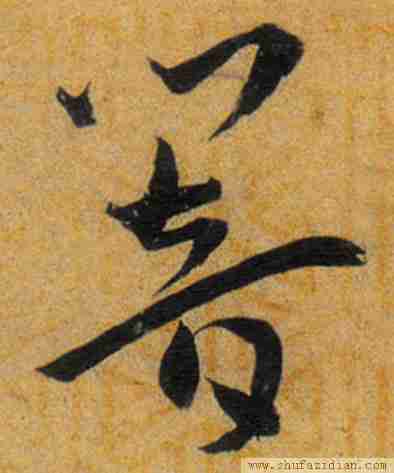 署
www.shufazidian.com